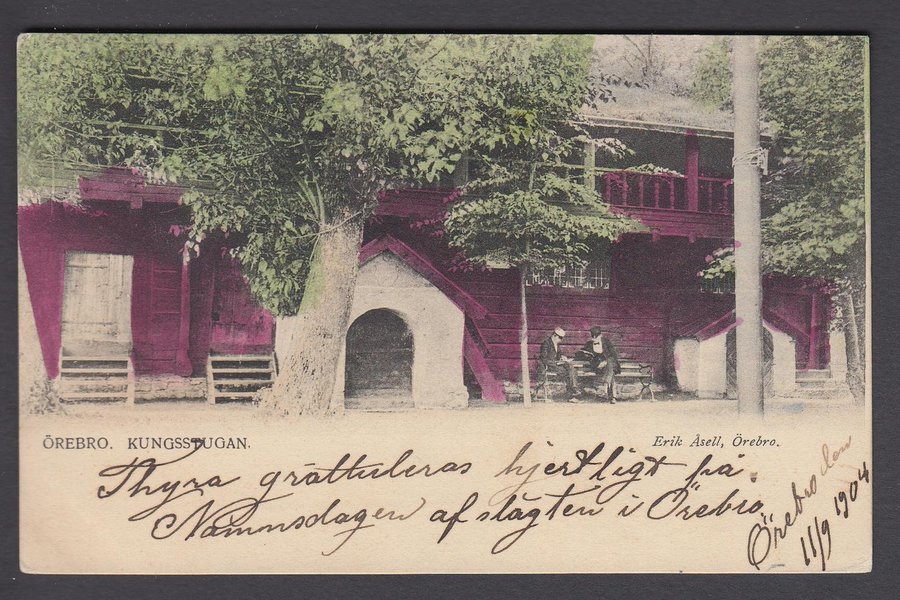 ÖREBRO. KUNGSSTUGAN.
Erik Åsell, Örebro.
Thyra gratuleras hjertligt på
Namnsdagen af slägten i Örebro.
Örebro den
11/9 1904